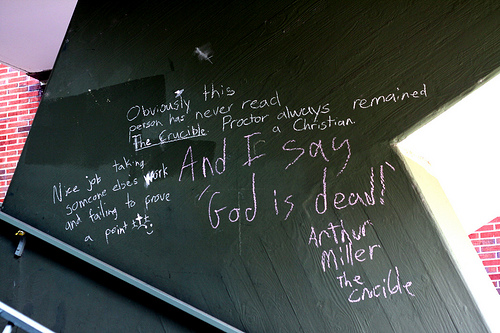 Obviously this
person has never read
The Crucible. Proctor always remained
a Christian.
And I say
"God is dead!"
Arthur
Miller
The
Crucible
Nice job taking
someone elses work
and failing to prove
a point